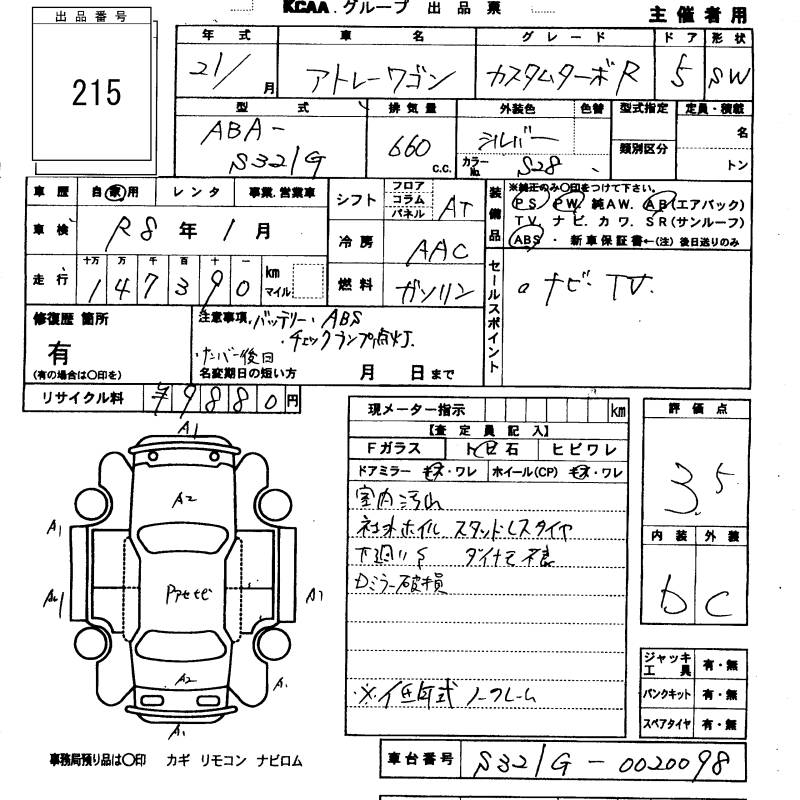 KCAA グループ 出品票
主催者用
出品番号
215
年式 車名 グレード ドア 形状
21/ 月 アトレーワゴン カスタムターボR 5 SW
型式 排気量 外装色 色替 型式指定 定員・積載
ABA-
S321G 660 c.c. シルバー カラーNo. S28 類別区分 名 トン
車歴 自家用 レンタ 事業.営業車
車検 R8年1月
走行 十万 万 千 百 十 一
147390 km マイル
シフト フロア コラム パネル AT
冷房 AAC
燃料 ガソリン
装備品 ※純正のみ○印をつけて下さい。
PS PW 純AW. AB(エアバック)
TV. ナビ. カワ. SR(サンルーフ)
ABS ・ 新車保証書←(注)後日送りのみ
セールスポイント
ナビ・TV.
修復歴 箇所
有
(有の場合は○印を)
注意事項.バッテリー・ABS
・チェックランプ点灯.
・ナンバー後日
名変期日の短い方 月 日まで
リサイクル料 ¥9880円
現メーター指示 km
【査定員記入】
Fガラス トビ石 ヒビワレ
ドアミラー キズ・ワレ ホイール(CP) キズ・ワレ
室内汚れ
社外ホイル スタッドレスタイヤ
下廻りS ダイナモ不良
Dミラー破損
※低年式 ノークレーム
評価点
3.5
内装 外装
D C
ジャッキ工具 有・無
パンクキット 有・無
スペアタイヤ 有・無
A1
A2
A1
A1
A2
A1
A1
事務局預り品は○印 カギ リモコン ナビロム
車台番号 S321G-0020098